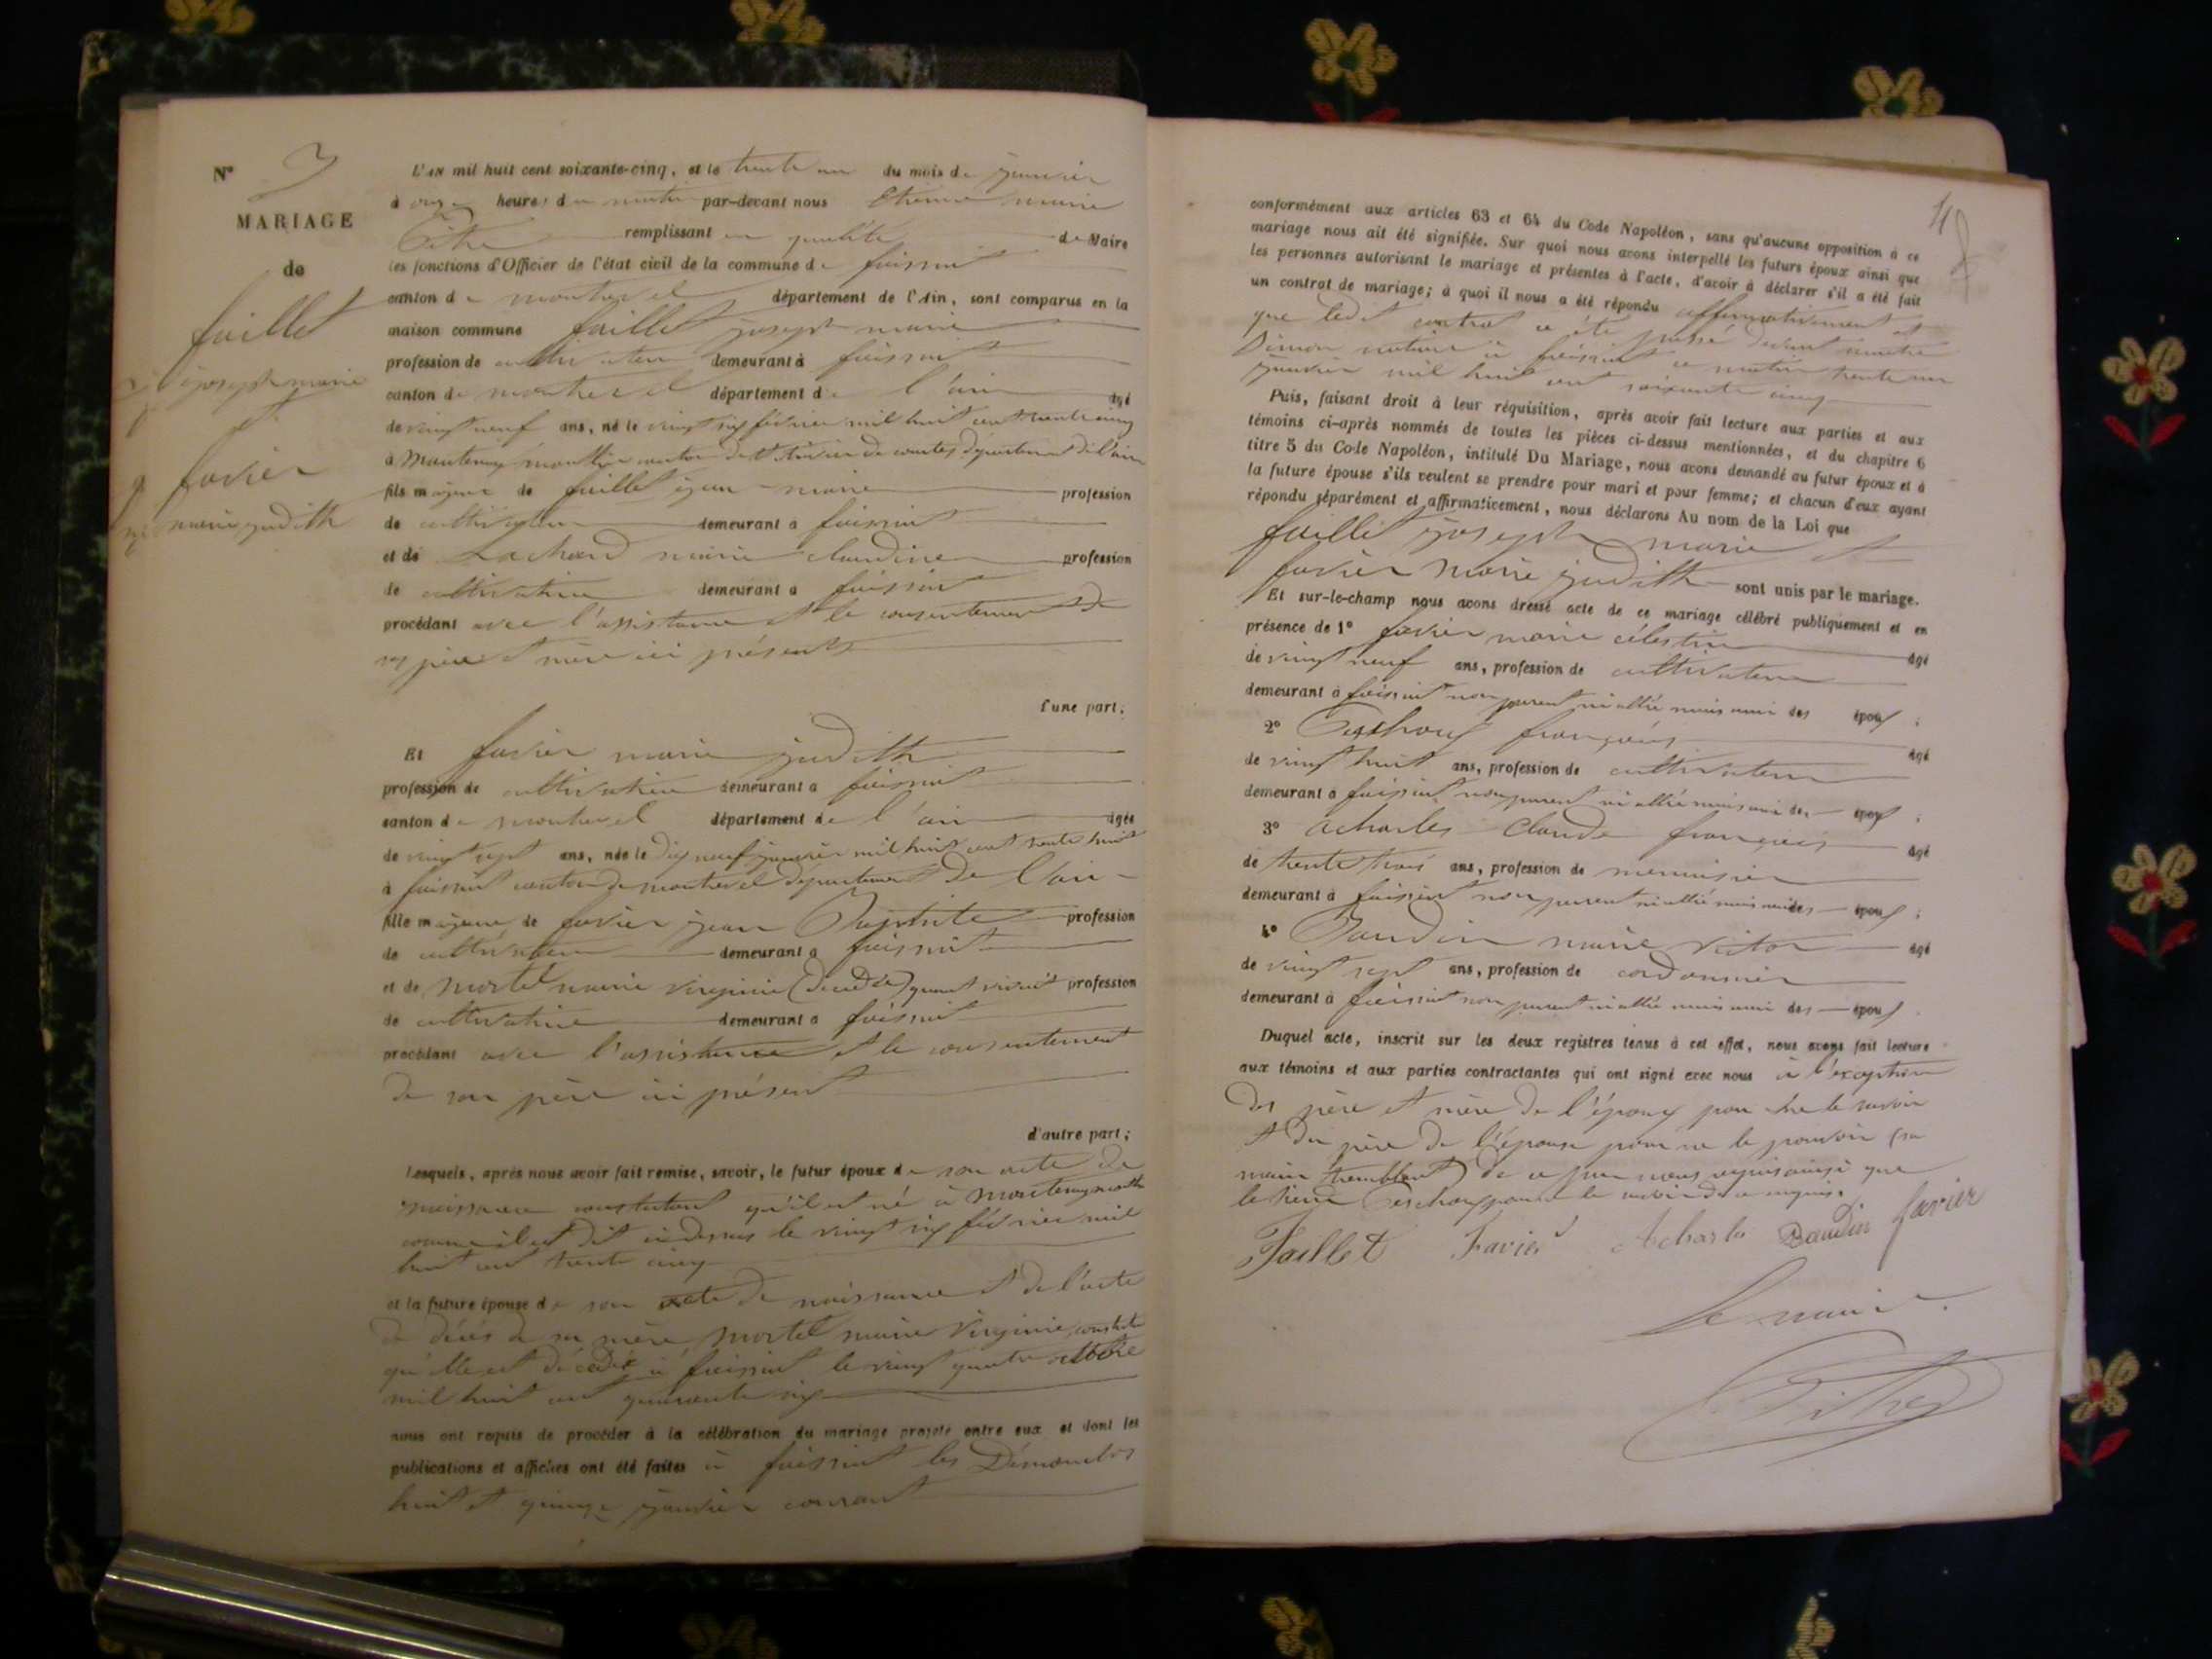 N° 3
MARIAGE
de
faillet
joseph marie
et
favier
marie judith
L'AN mil huit cent soixante-cinq, et le trente un du mois de janvier
à onze heures du matin par-devant nous Etienne marie
remplissant en qualité de Maire
les fonctions d'Officier de l'état civil de la commune de foissiat
canton de montrevel département de l'Ain, sont comparus en la
maison commune faillet joseph marie
profession de cultivateur demeurant à foissiat
canton de montrevel département de l'ain âgé
de vingt neuf ans, né le vingt six février mil huit cent trente cinq
à département de l'ain
fils majeur de faillet jean marie profession
de cultivateur demeurant à foissiat
et de marie claudine profession
de cultivatrice demeurant à foissiat
procédant avec l'assistance et le consentement de
ses père et mère ici présents
d'une part;
Et favier marie judith
profession de cultivatrice demeurant à foissiat
canton de montrevel département de l'ain âgée
de vingt sept ans, née le dix neuf janvier mil huit cent trente huit
à foissiat canton de montrevel département de l'ain
fille majeure de favier jean Baptiste profession
de cultivateur demeurant à foissiat
et de mortel marie virginie (décédée) quand vivait profession
de cultivatrice demeurant à foissiat
procédant avec l'assistance et le consentement
de son père ici présent
d'autre part;
Lesquels, après nous avoir fait remise, savoir, le futur époux de son acte de
naissance constatant qu'il est né à
comme il est dit ci dessus le vingt six février mil
huit cent trente cinq
et la future épouse de son acte de naissance et de l'acte
de décès de sa mère mortel marie virginie,
qu'elle est décédée à foissiat le vingt quatre octobre
mil huit cent quarante six
nous ont requis de procéder à la célébration du mariage projeté entre eux et dont les
publications et affiches ont été faites à foissiat les Dimanches
huit et quinze janvier courant
conformément aux articles 63 et 64 du Code Napoléon, sans qu'aucune opposition à ce
mariage nous ait été signifiée. Sur quoi nous avons interpellé les futurs époux ainsi que
les personnes autorisant le mariage et présentes à l'acte, d'avoir à déclarer s'il a été fait
un contrat de mariage; à quoi il nous a été répondu affirmativement et
que ledit contrat a été passé devant maître
notaire à foissiat ce matin trente un
janvier mil huit cent soixante cinq
Puis, faisant droit à leur réquisition, après avoir fait lecture aux parties et aux
témoins ci-après nommés de toutes les pièces ci-dessus mentionnées, et du chapitre 6
titre 5 du Code Napoléon, intitulé Du Mariage, nous avons demandé au futur époux et à
la future épouse s'ils veulent se prendre pour mari et pour femme; et chacun d'eux ayant
répondu séparément et affirmativement, nous déclarons Au nom de la Loi que
faillet joseph marie et
favier marie judith sont unis par le mariage.
Et sur-le-champ nous avons dressé acte de ce mariage célébré publiquement et en
présence de 1° favier marie célestin âgé
de vingt neuf ans, profession de cultivateur
demeurant à foissiat non parent ni allié mais ami des époux ;
2° françois âgé
de vingt huit ans, profession de cultivateur
demeurant à foissiat non parent ni allié mais ami des époux ;
3° acharles claude françois âgé
de trente trois ans, profession de menuisier
demeurant à foissiat non parent ni allié mais ami des époux ;
4° Baudin marie victor âgé
de vingt sept ans, profession de cordonnier
demeurant à foissiat non parent ni allié mais ami des époux
Duquel acte, inscrit sur les deux registres tenus à cet effet, nous avons fait lecture
aux témoins et aux parties contractantes qui ont signé avec nous à l'exception
des père et mère de l'époux pour ne le savoir
et du père de l'épouse pour ne le pouvoir (sa
main tremblant) de ce par nous requis ainsi que
le sieur pour ne le savoir de ce requis.
Faillet Favier Acharles Baudin favier
Le maire